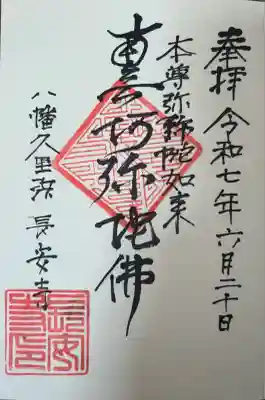 奉拝 令和七年六月二十日
本尊弥陀如来
南無阿弥陀佛
八幡久里浜 長安寺
長安寺印